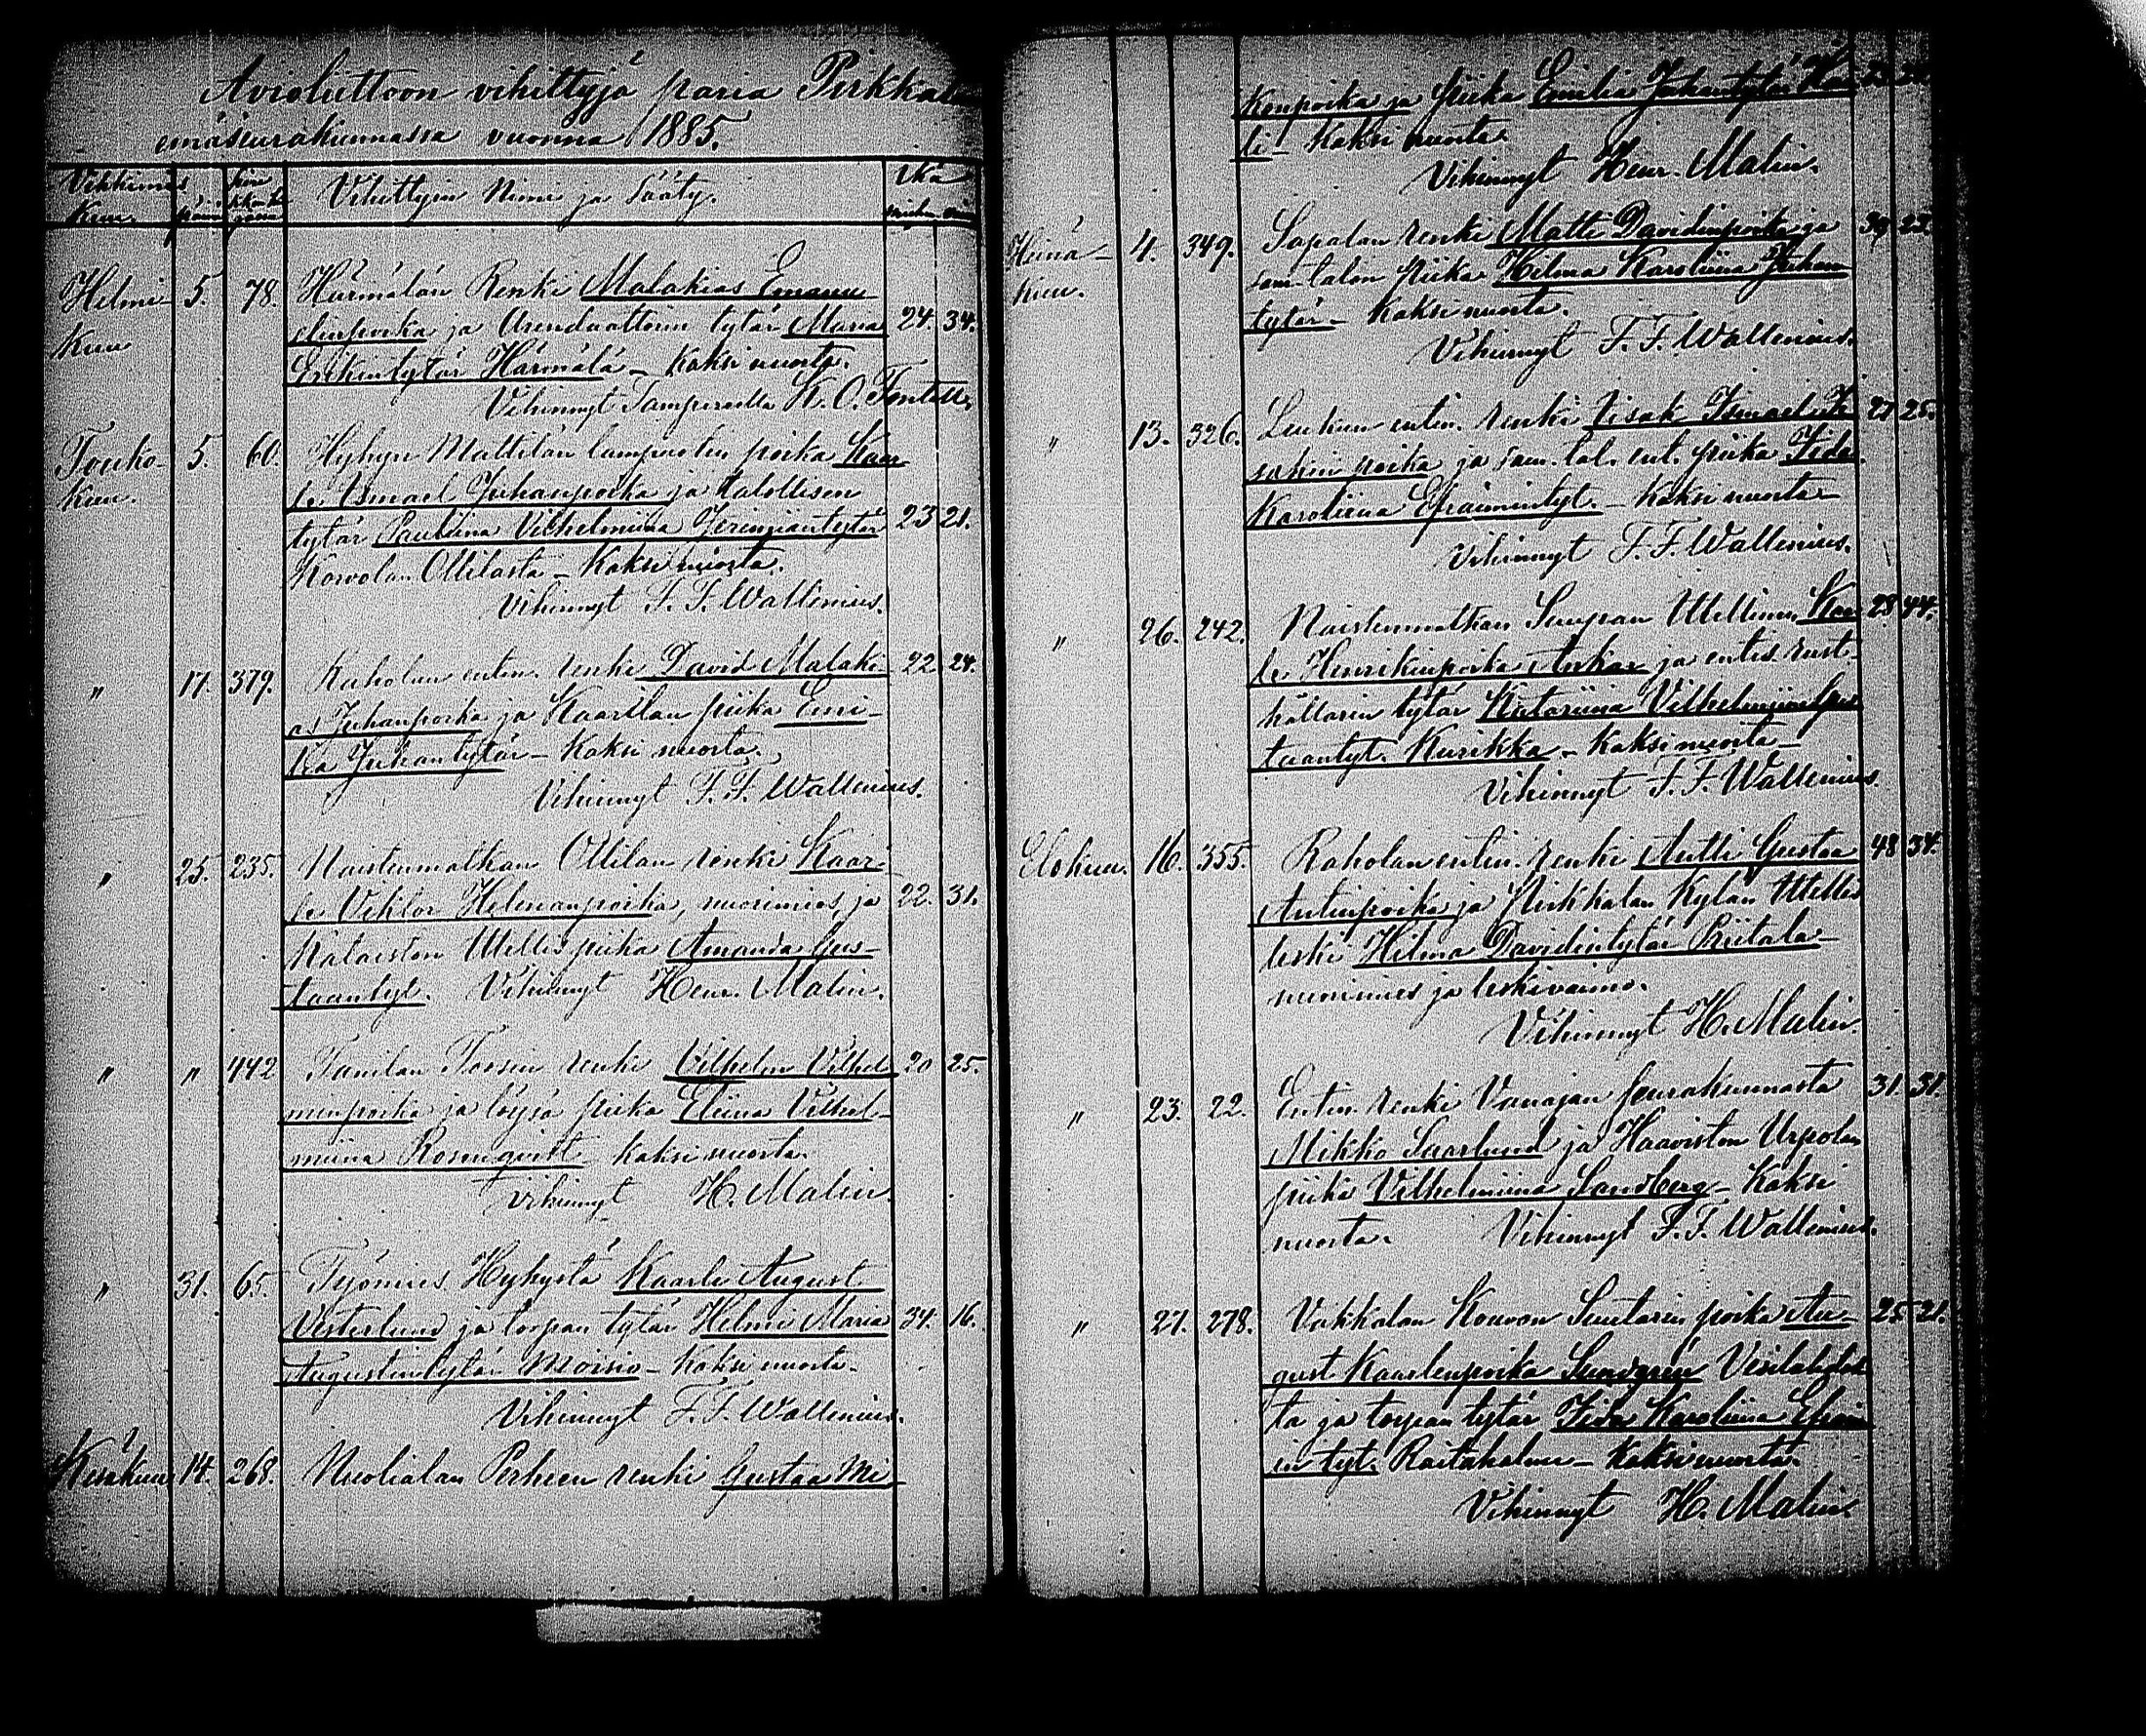 Avioliittoon vihittyjä paria Pirkkalan
emäseurakunnassa vuonna 1885.
Vihkimis
Kuu. päivä
Vihittyin Nimi ja Sääty.
Ikä
miehen
Helmi- 5. 78. Härmälän Renki Malakias Emanu-
kuu
elinpoika ja Arendaattorin tytär Maria 24. 34.
Erikintytär Härmälä – kaksi nuorta.
Vihinnyt Tampereella K. O. Fontell.
Touko- 5. 60. Hyhyn Mattilan lampuotin poika Kaar-
kuu.
le Ismael Juhanpoika ja talollisen
tytär Pauliina Vilhelmiina Jeremiantytär 23 21.
Korvolan Ollilasta – Kaksi nuorta.
Vihinnyt F. F. Wallenius.
" 17. 379. Raholan entin. renki David Malaki- 22 24.
as Juhanpoika ja Kaarilan piika Emi-
lia Juhantytär – Kaksi nuorta.
Vihinnyt F. F. Wallenius.
" 25. 235. Naistenmatkan Ollilan renki Kaar-
le Viktor Helenanpoika, nuorimies, ja 22. 31.
Itsellis piika Amanda Gus-
taantyt. Vihinnyt Henr. Malin.
" " 442 Tanilan renki Vilhelm Vilhel- 20 25.
minpoika ja löysä piika Eliina Vilhel-
miina Rosenqvist – kaksi nuorta.
Vihinnyt H. Malin.
" 31. 65. Työmies Hyhystä Kaarle August
Vesterlund ja torpan tytär Helmi Maria 34. 16.
Augustintytär Moisio – Kaksi nuorta.
Vihinnyt F. F. Wallenius.
Kesäkuu 14. 268. Nuolialan Perheen renki Gustaa Mi-
konpoika ja piika Emilia Juhantytär
li – Kaksi nuorta.
Vihinnyt Henr. Malin.
Heinä- 4. 349. Sapalan renki Matti Davidinpoika ja 39 23.
kuu.
sam. talon piika Hilma Karoliina Juhan-
tytär – Kaksi nuorta.
Vihinnyt F. F. Wallenius.
" 13. 326. entin. renki Iisak Ismael 27 25.
sakinpoika ja sam. tal. ent. piika Iida
Karoliina Efraimintyt. – Kaksi nuorta –
Vihinnyt F. F. Wallenius.
" 26. 242. Naistenmatkan Simpan Itsellinen Kaar- 28 44.
le Henrikinpoika Ankar ja entis. rust-
hållarin tytär Katariina Vilhelmiina Gus-
taantyt. Kurikka – Kaksi nuorta –
Vihinnyt F. F. Wallenius.
Elokuu. 16. 355. Raholan entin. renki Antti Gustaa 48 34.
Antinpoika ja Pirkkalan Kylän Itsellis
leski Hilma Davidintytär Riitala –
nuorimies ja leskivaimo.
Vihinnyt H. Malin.
" 23. 22. Entin. renki Vanajan seurakunnasta 31. 31.
Mikko Saarlund ja Haaviston Urpolan
piika Vilhelmiina Sandberg – Kaksi
nuorta. Vihinnyt F. F. Wallenius.
" 27. 278. Vakkalan Kouvon Suutarin poika Au- 25 21.
gust Kaarlenpoika Sundgren Vesilahdes-
ta ja torpan tytär Iida Karoliina Efraim-
in tyt. Raitaholmi – Kaksi nuorta.
Vihinnyt H. Malin.